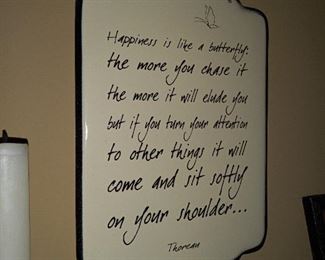 Happiness is like a butterfly:
the more you chase it
the more it will elude you
but if you turn your attention
to other things it will
come and sit softly
on your shoulder...
Thoreau